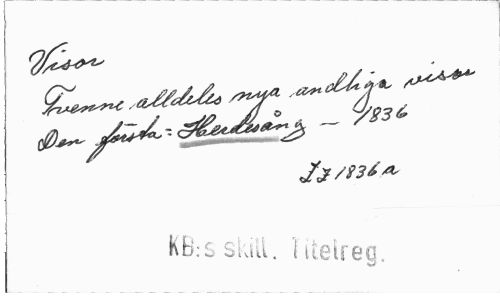 Visor
Tvenne alldeles nya andliga visor
Den första: Herdesång – 1836
1836 a
KB:s skill. Titelreg.